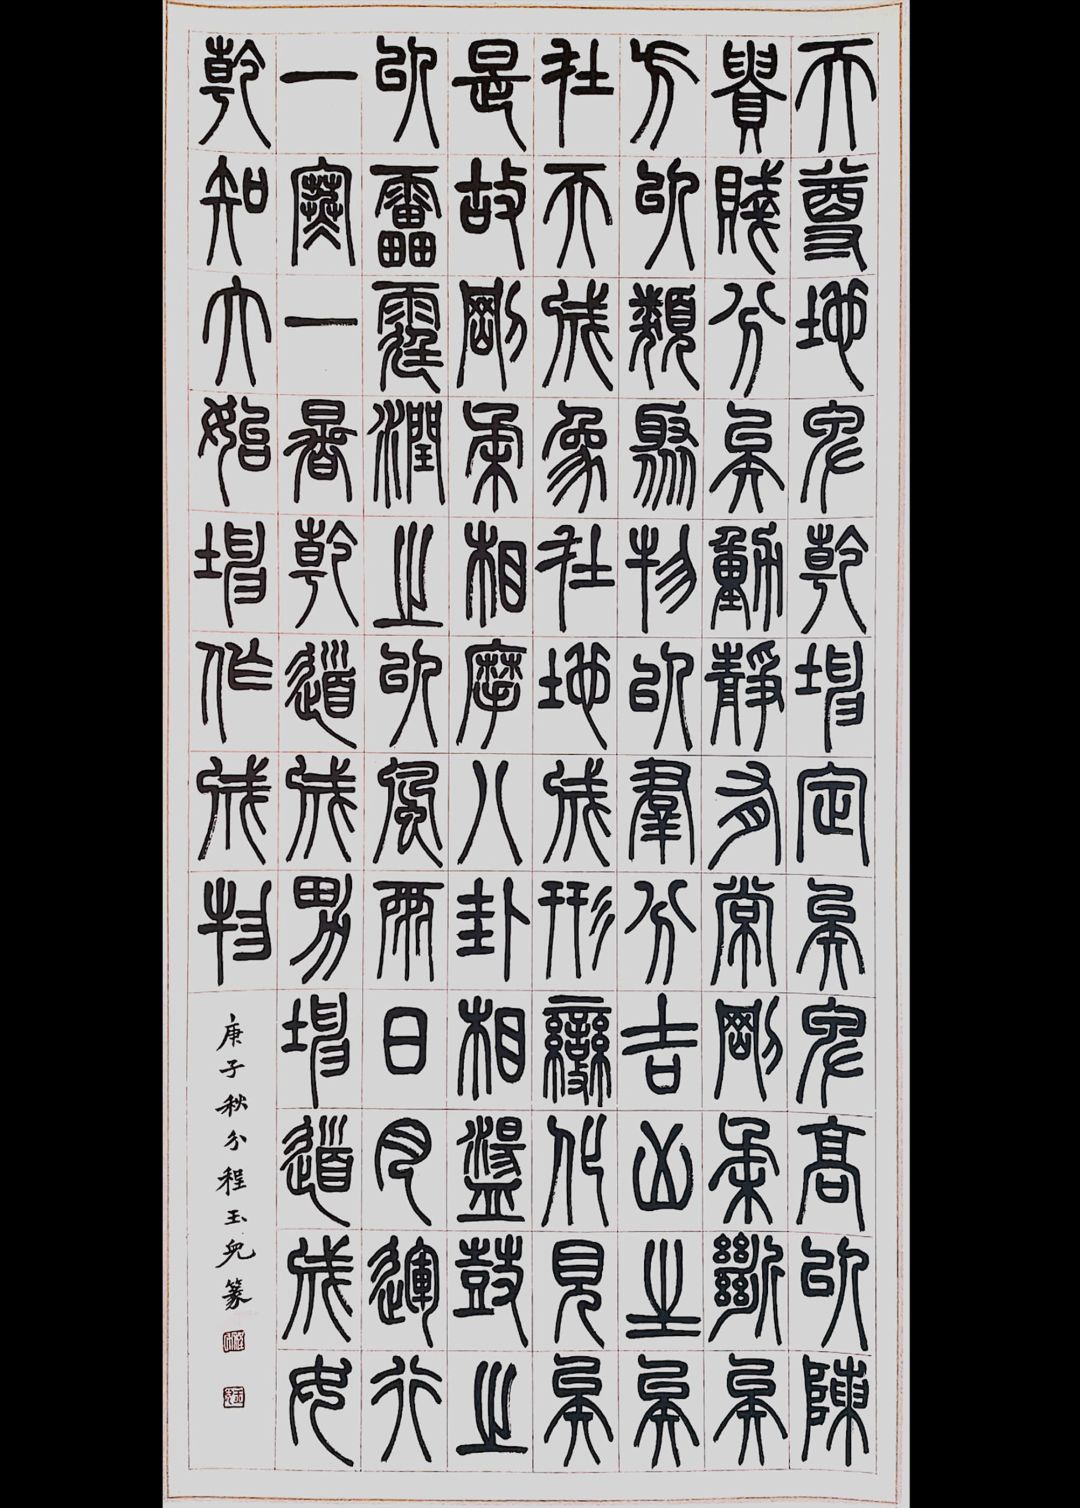 天尊地卑乾坤定矣卑高以陳
貴賤分矣動靜有常剛柔斷矣
方以類聚物以羣分吉凶生矣
在天成象在地成形變化見矣
是故剛柔相摩八卦相盪鼓之
以雷霆潤之以風雨日月運行
一寒一暑乾道成男坤道成女
乾知大始坤作成物
庚子秋分程玉兒篆